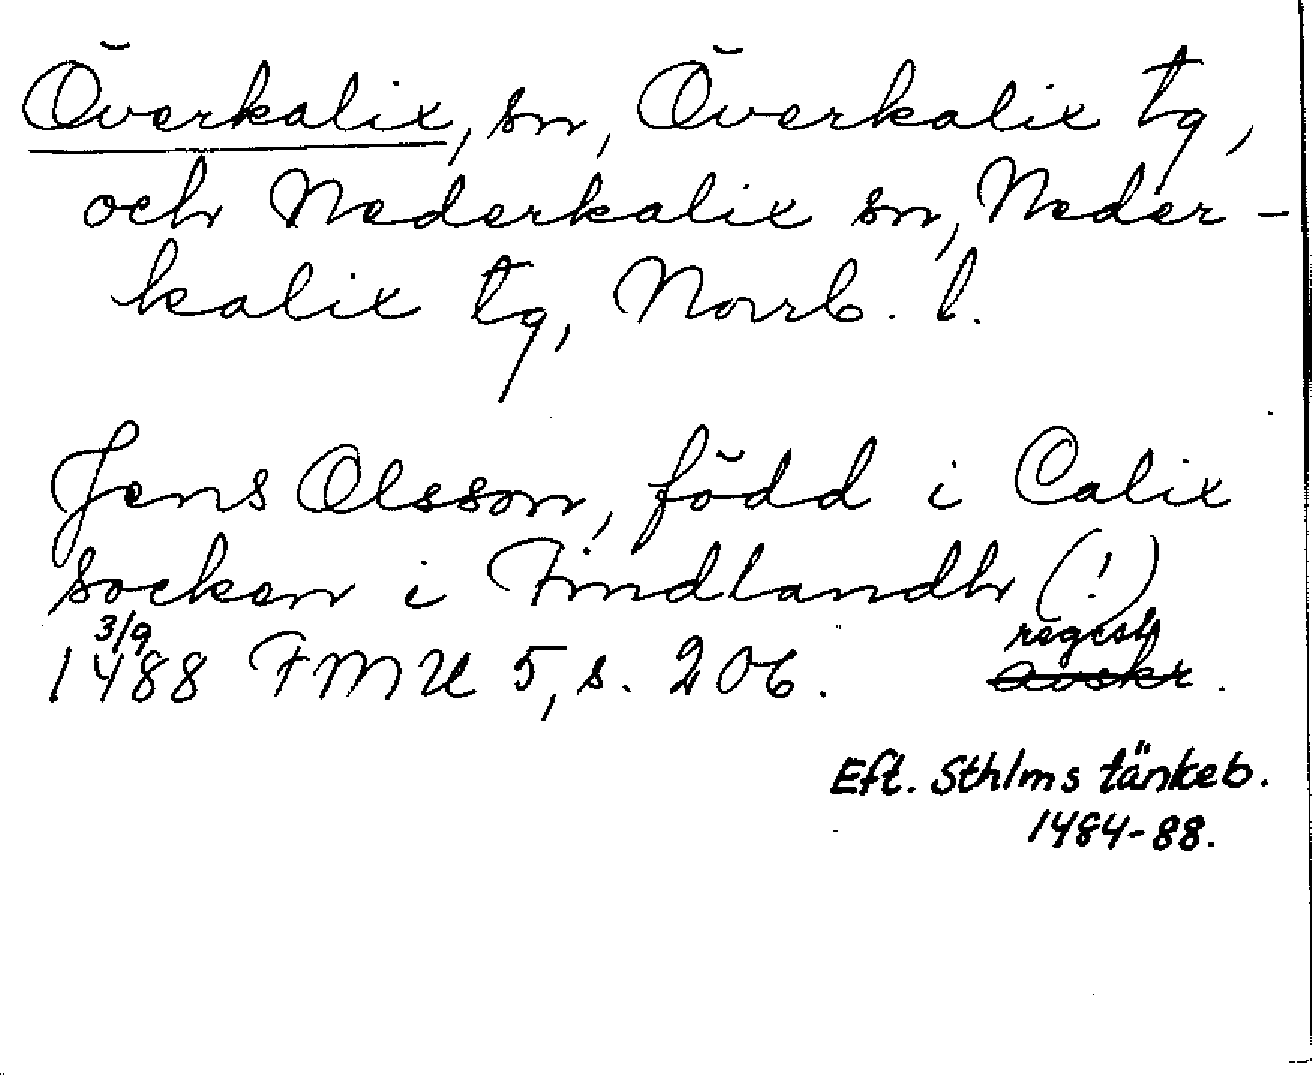 Överkalix, sn, Överkalix tg,
och Nederkalix sn, Neder-
kalix tg, Norrb. l.
Jens Olsson, född i Calix
socken i Findlandh (!)
3/9 regest
1488 FMU 5, s. 206. avskr.
Eft. Sthlms tänkeb.
1484-88.